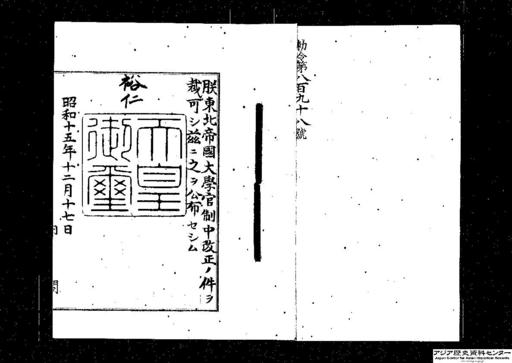 勅令第八百九十八號
朕東北帝國大學官制中改正ノ件ヲ
裁可シ茲ニ之ヲ公布セシム
裕仁
天皇
御璽
昭和十五年十二月十七日
アジア歴史資料センター
Japan Center for Asian Historical Records